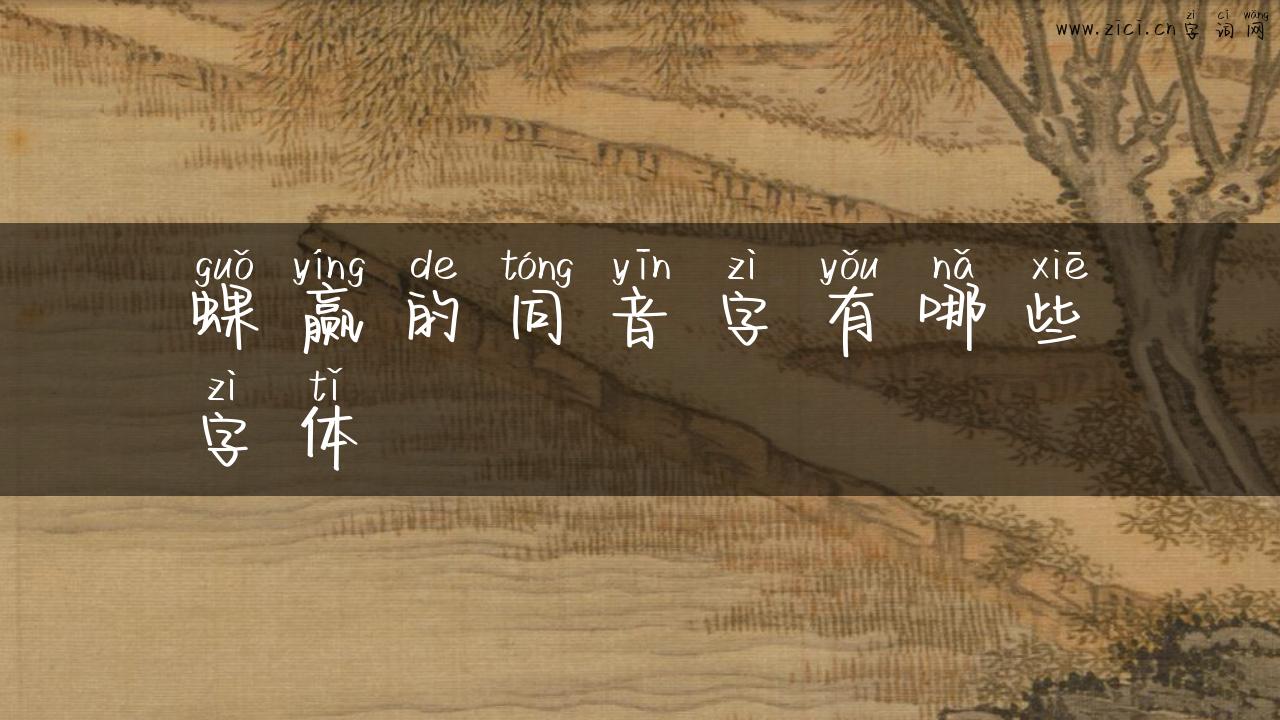 zì cí wǎng
www.zici.cn字词网
guǒ yíng de tóng yīn zì yǒu nǎ xiē
蜾赢的同音字有哪些
zì tǐ
字体